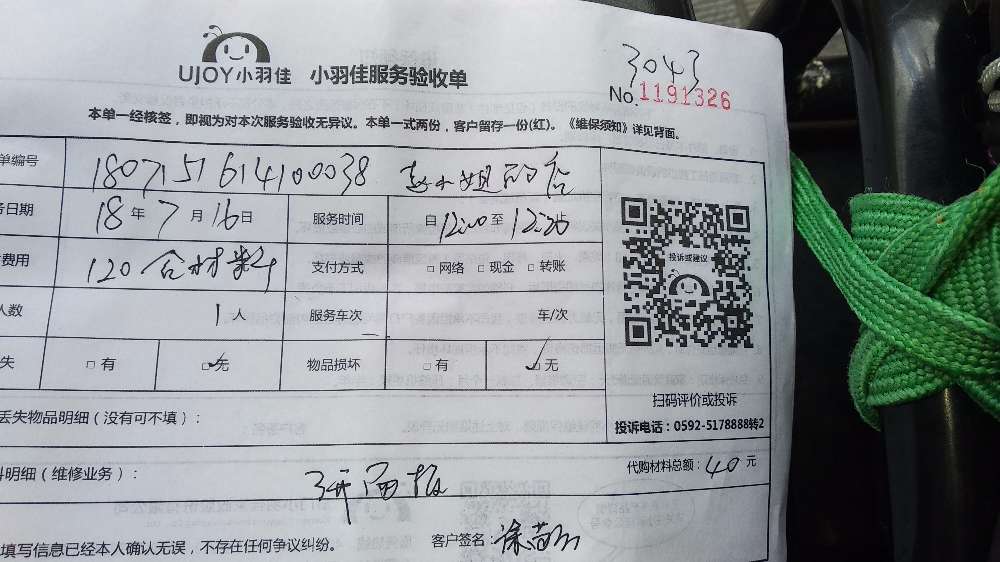 3043
UJOY小羽佳 小羽佳服务验收单
No.1191326
本单一经核签，即视为对本次服务验收无异议。本单一式两份，客户留存一份(红)。《维保须知》详见背面。
单编号 180715161410038 赵小姐的店
务日期 18 年 7 月 16 日 服务时间 自 12:00 至
费用 120 含材料 支付方式 □ 网络 □ 现金 □ 转账
人数 1 人 服务车次 车/次
失 □ 有 ☑ 无 物品损坏 □ 有 ☑ 无
投诉或建议
扫码评价或投诉
投诉电话：0592-5178888转2
丢失物品明细（没有可不填）：
料明细（维修业务）： 代购材料总额：40 元
面板
填写信息已经本人确认无误，不存在任何争议纠纷。 客户签名：